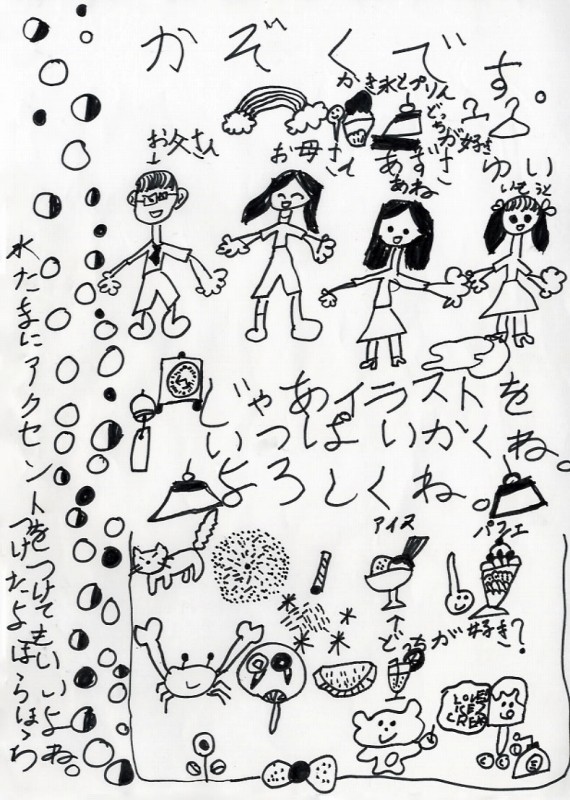 かぞくです。
かき氷とプリン
どっちが好き
お父さん
お母さん
あずさ
あね
ゆい
いもうと
じゃあイラストを
いっぱいかくね。
よろしくね。
アイス
パフェ
どっちが好き?
LOVE
ICE
CREAM
水たまにアクセントをつけてもいいよね。
つけたよほらほら